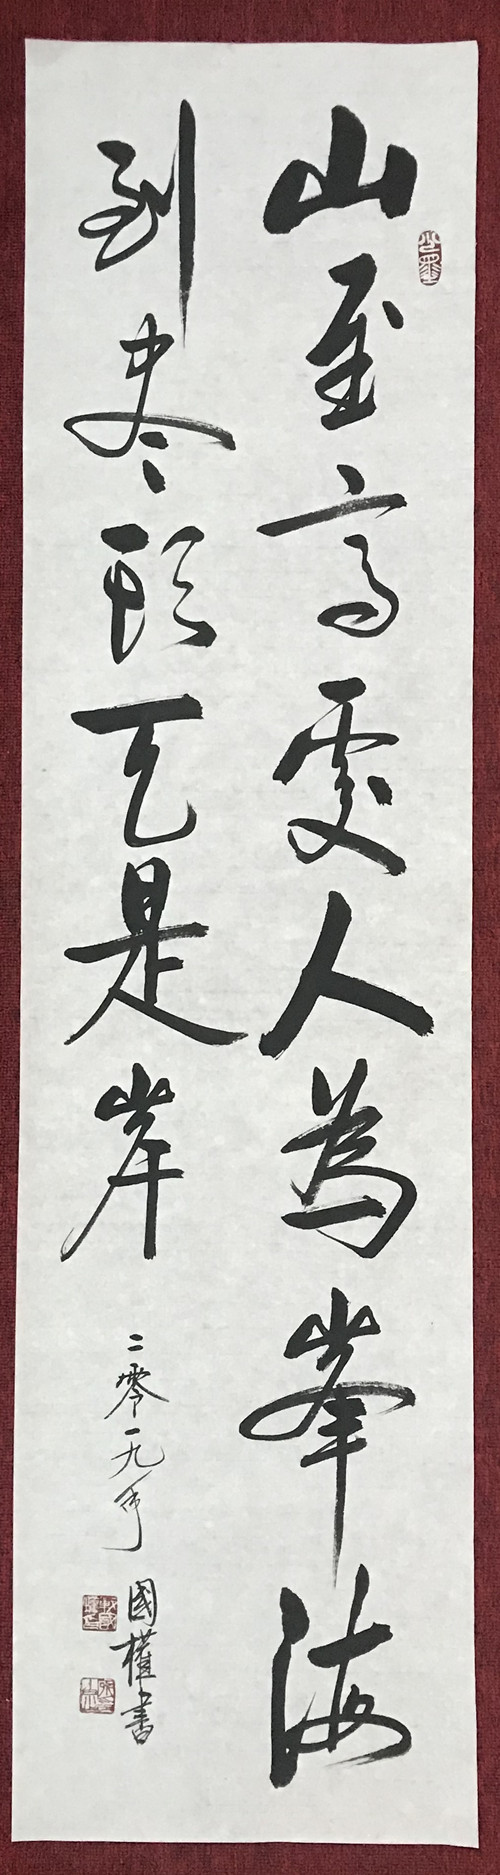 山至高處人為峯海
到盡頭天是岸
二零一九年
國權書